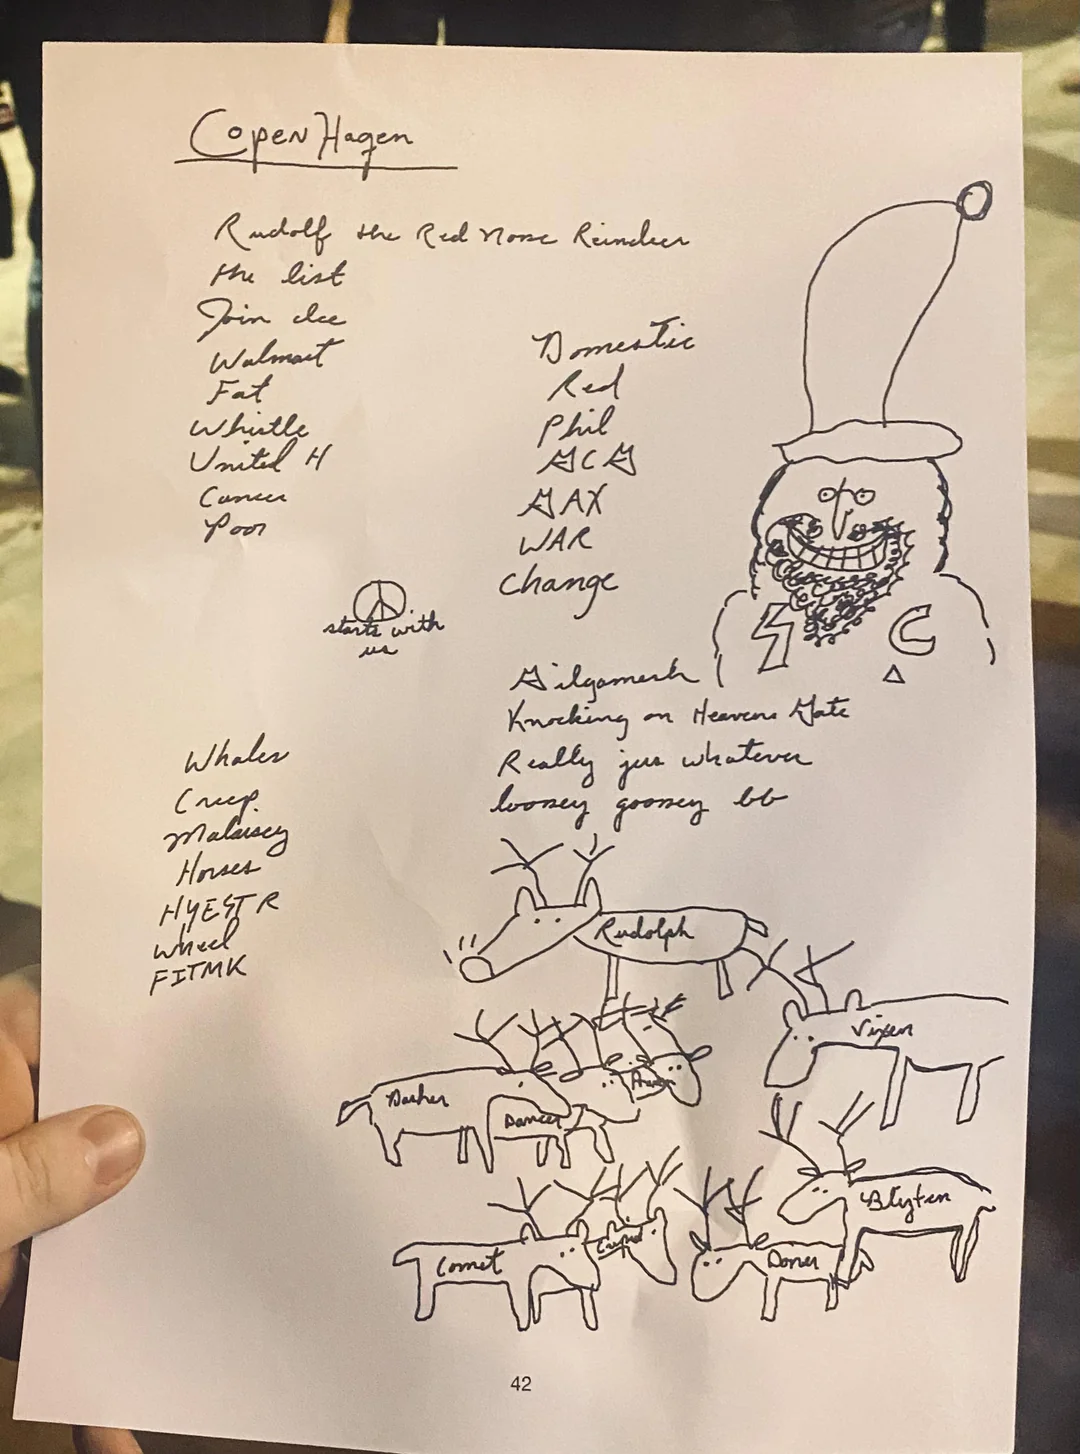 CopenHagen
Rudolf the Red Nose Reindeer
the list
Join Ice
Walmart
Fat
Whistle
United H
Cancer
Poor
Domestic
Red
Phil
GCG
GAX
WAR
Change
starts with
us
S C
Gilgamesh
Knocking on Heavens Gate
Really jus whatever
loosey goosey bb
Whales
Creep
Malaisey
Horses
HYESTR
Wheel
FITMK
Rudolph
Vixen
Dasher
Dancer
Blyten
Comet
Cupid
Doner
42